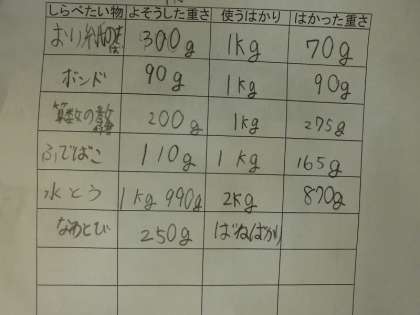 しらべたい物 よそうした重さ 使うはかり はかった重さ
おり紙のたば 300g 1kg 70g
ボンド 90g 1kg 90g
算数の教科書 200g 1kg 275g
ふでばこ 110g 1kg 165g
水とう 1kg 990g 2kg 870g
なわとび 250g ばねばかり